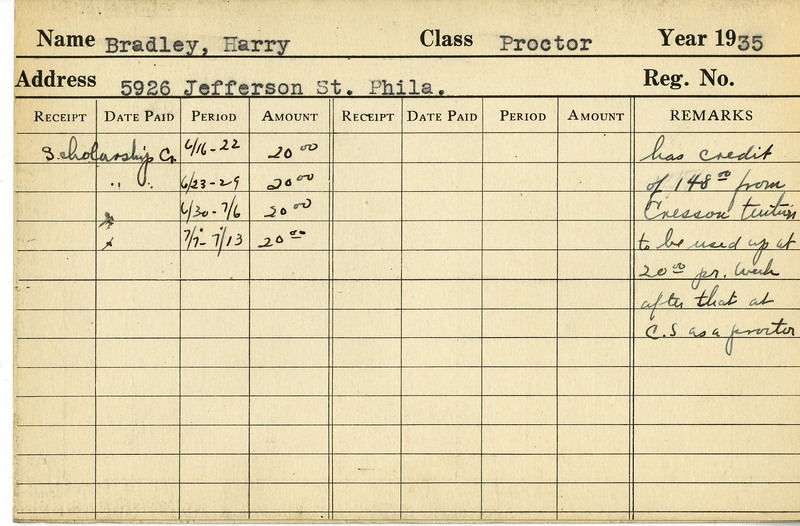 Name Bradley, Harry Class Proctor Year 1935
Address 5926 Jefferson St. Phila. Reg. No.
RECEIPT DATE PAID PERIOD AMOUNT RECEIPT DATE PAID PERIOD AMOUNT REMARKS
Scholarship Cr. 6/16-22 20 00 has credit
" " 6/23-29 20 00 of 148 00 from
6/30-7/6 20 00 Cresson tuition
7/7-7/13 20 00 to be used up at
20 00 pr. week
after that at
C.S as a proctor